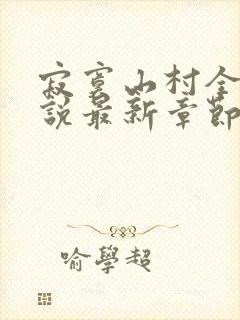 寂寞山村全
說最新章節
喻學超